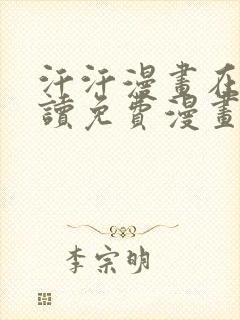 汗汗漫畫在
讀免費漫畫
李宗明